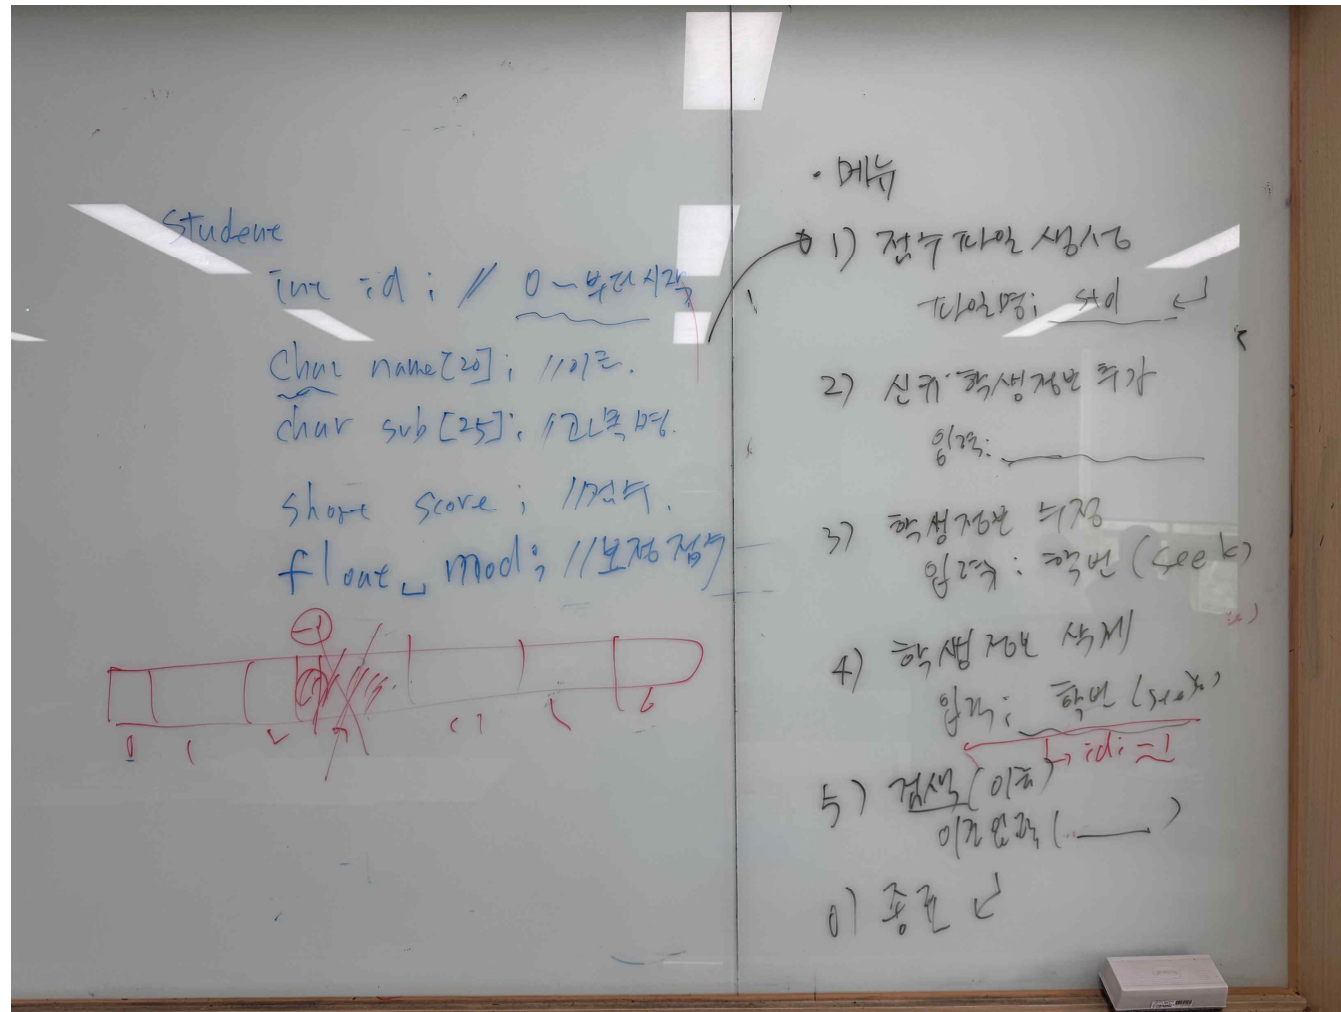 Student
int id; // 0~부터시작
char name[20]; //이름.
char sub[25]; //과목명.
short score; //점수.
float␣mod; //보정점수
-1
0 1 2 3 4 5 6
· 메뉴
1) 점수파일 생성
파일명: std ↵
2) 신규 학생정보 추가
입력:
3) 학생정보 수정
입력: 학번 (seek)
4) 학생정보 삭제
입력: 학번 (seek)
↳ id: -1
5) 검색 (이름)
이름입력 ( )
0) 종료 ↵